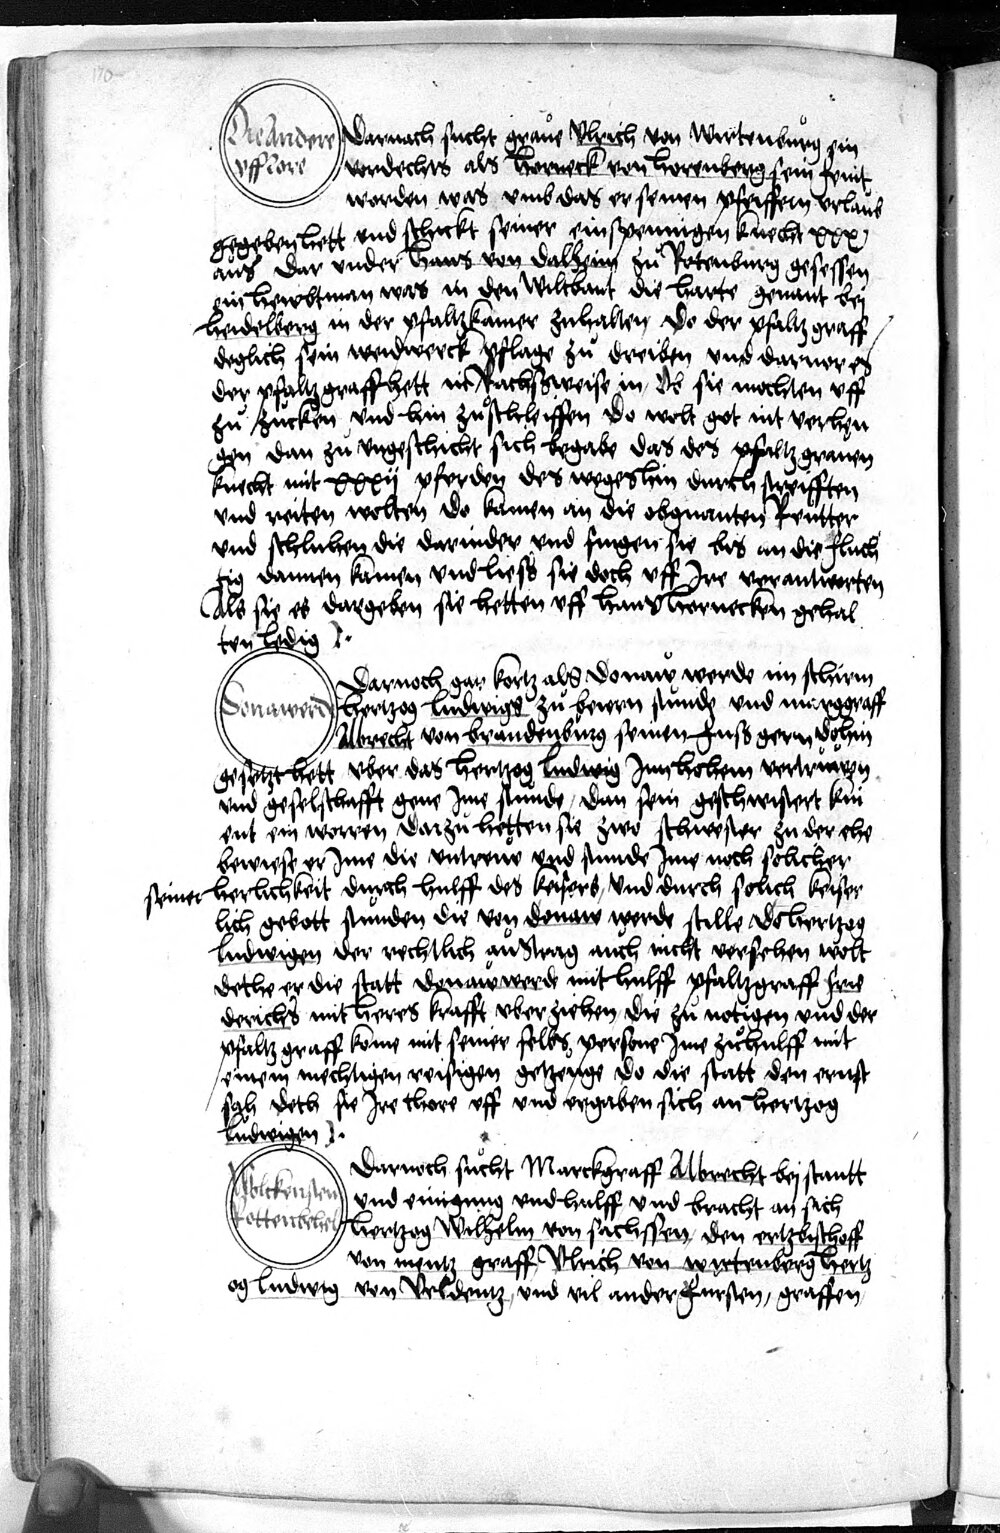 170
Die Andere
vfflore
Darnach sucht graue Vlrich von Wirtenburg ein
vordechts als Horneck von Horenberg sein feint
worden was vmb das er seinen pfeiffern vrlaub
gegeben hett vnd schickt seiner einspennigen knecht xxx
aus dar vnder Hans von Dalheim zu Rotenburg gesessen
ein hewbtman was in den Wiltbant die harte genant bei
Heidelberg in der pfaltz kamer zuhalten Do der pfaltzgraff
deglich sein weidwerck pflage zu dreiben vnd darnor es
der pfaltzgraff hett in Rachssweise in Ob sie mochten vff
zu zucken vnd hin zuschleiffen Do wolt got nit verhen
gen dan zu vngeschicht sich begabe das des pfaltzgrauen
knecht mit xxxij pferden des weges hin durch streifften
vnd reiten wolten Do kamen an die obgnanten Reutter
vnd schluhen die darnider vnd fingen sie bis an die fluch
tig dannen kamen vnd liess sie doch vff Ire verantworten
Als sie es dargeben sie hetten vff Hans Hornecken gehal
ten ledig
Donawerde
Darnoch gar kortz als Donaw werde im schirm
Hertzog Ludwigs zu beiern stunde vnd marggraff
Albrecht von brandenburg seinen fuss gern dohin
gesetzt hett vber das Hertzog Ludwig Inn hohem vertruwen
vnd geselschafft gene Ime stunde, dan sein geschwistert kin
ent ein worren darzu hetten sie zwo schwester zu der ehe
bewiese er Ime die vntreue vnd stunde Ime noch solicher
seiner herlichkeit durch hulff des keisers, vnd durch solich keiser
lich gebott stunden die von donaw werde stille Do hertzog
Ludwigen der rechtlich austrag auch nicht versehen wolt
dethe er die statt donauwerde mit hulff pfaltzgraff frie
derichs mit heres krafft vber ziehen die zu notigen vnd der
pfaltzgraff kome mit seiner selbs persone Ime zuhulff mit
einem mechtigen reisigen getzeuge do die statt den ernst
sah deth sie Ire thore vff vnd ergaben sich an hertzog
Ludwigen
Darnoch sucht Marckgraff Albrecht beistantt
vnd einigung vnd hulff vnd bracht an sich
Hertzog Wilhelm von sachssen, den ertzbischoff
von mentz graff Vlrich von wirtenberg hertz
og Ludwig von Veldentz, vnd vil ander fursten, graffen